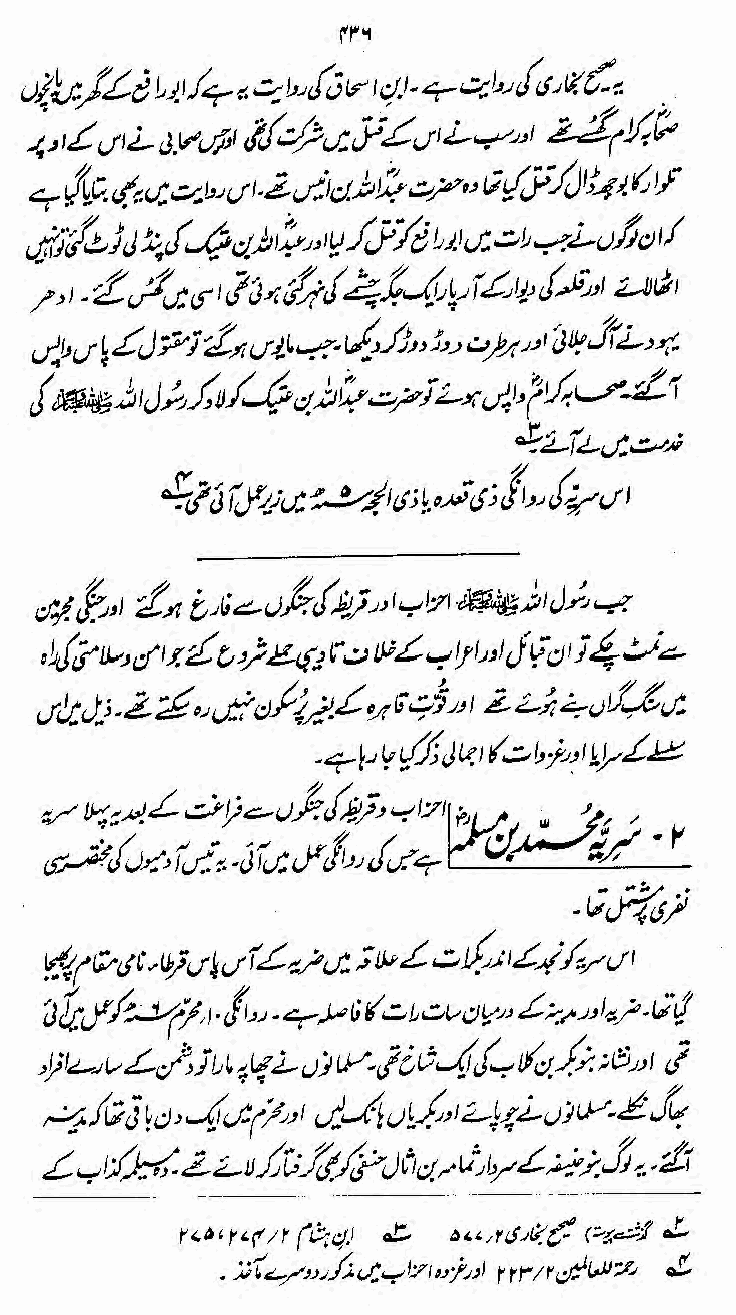 ۴۳۶
یہ صحیح بخاری کی روایت ہے۔ ابن اسحاق کی روایت یہ ہے کہ ابو رافع کے گھر میں پانچوں
صحابہ کرامؓ گھسے تھے اور سب نے اس کے قتل میں شرکت کی تھی اور جس صحابی نے اس کے اوپر
تلوار کا بوجھ ڈال کر قتل کیا تھا وہ حضرت عبداللہؓ بن انیس تھے۔ اس روایت میں یہ بھی بتایا گیا ہے
کہ ان لوگوں نے جب رات میں ابو رافع کو قتل کر لیا اور عبداللہؓ بن عتیک کی پنڈلی ٹوٹ گئی تو انہیں
اٹھا لائے اور قلعہ کی دیوار کے آر پار ایک جگہ چشمے کی نہر گئی ہوئی تھی اسی میں گھس گئے۔ ادھر
یہود نے آگ جلائی اور ہر طرف دوڑ دوڑ کر دیکھا۔ جب مایوس ہو گئے تو مقتول کے پاس واپس
آ گئے۔ صحابہ کرامؓ واپس ہوئے تو حضرت عبداللہؓ بن عتیک کو لاد کر رسول اللہ ﷺ کی
خدمت میں لے آئے۔ ۳
اس سریّہ کی روانگی ذی قعدہ یا ذی الحجہ ۵ھ میں زیر عمل آئی تھی۔ ۴
جب رسُول اللہ ﷺ احزاب اور قریظہ کی جنگوں سے فارغ ہو گئے اور جنگی مجرمین
سے نمٹ چکے تو ان قبائل اور اعراب کے خلاف تادیبی حملے شروع کئے جو امن و سلامتی کی راہ
میں سنگِ گراں بنے ہُوئے تھے اور قوّتِ قاہرہ کے بغیر پُرسکون نہیں رہ سکتے تھے۔ ذیل میں اس
سلسلے کے سرایا اور غزوات کا اجمالی ذکر کیا جا رہا ہے۔
۲۔ سَرِیّہ محمّد بن مسلمہؓ احزاب و قریظہ کی جنگوں سے فراغت کے بعد یہ پہلا سریہ
ہے جس کی روانگی عمل میں آئی۔ یہ تیس آدمیوں کی مختصر سی
نفری پر مشتمل تھا۔
اس سریہ کو نجد کے اندر بکرات کے علاقہ میں ضریہ کے آس پاس قرطاء نامی مقام پر بھیجا
گیا تھا۔ ضریہ اور مدینہ کے درمیان سات رات کا فاصلہ ہے۔ روانگی ۱۰؍محرّم ۶ھ کو عمل میں آئی
تھی اور نشانہ بنو بکر بن کلاب کی ایک شاخ تھی۔ مسلمانوں نے چھاپہ مارا تو دشمن کے سارے افراد
بھاگ نکلے۔ مسلمانوں نے چوپائے اور بکریاں ہانک لیں اور محرّم میں ایک دن باقی تھا کہ مدینہ
آ گئے۔ یہ لوگ بنو حنیفہ کے سردار ثمامہ بن اثال حنفی کو بھی گرفتار کر لائے تھے۔ وہ مسیلمہ کذاب کے
۲ (گزشتہ سے پیوستہ) صحیح بخاری ۵۷۷/۲ ۳ ابنِ ہشام ۲۷۵،۲۷۴/۲
۴ رحمۃ للعالمین ۲۲۳/۲ اور غزوہ احزاب میں مذکور دوسرے مآخذ۔